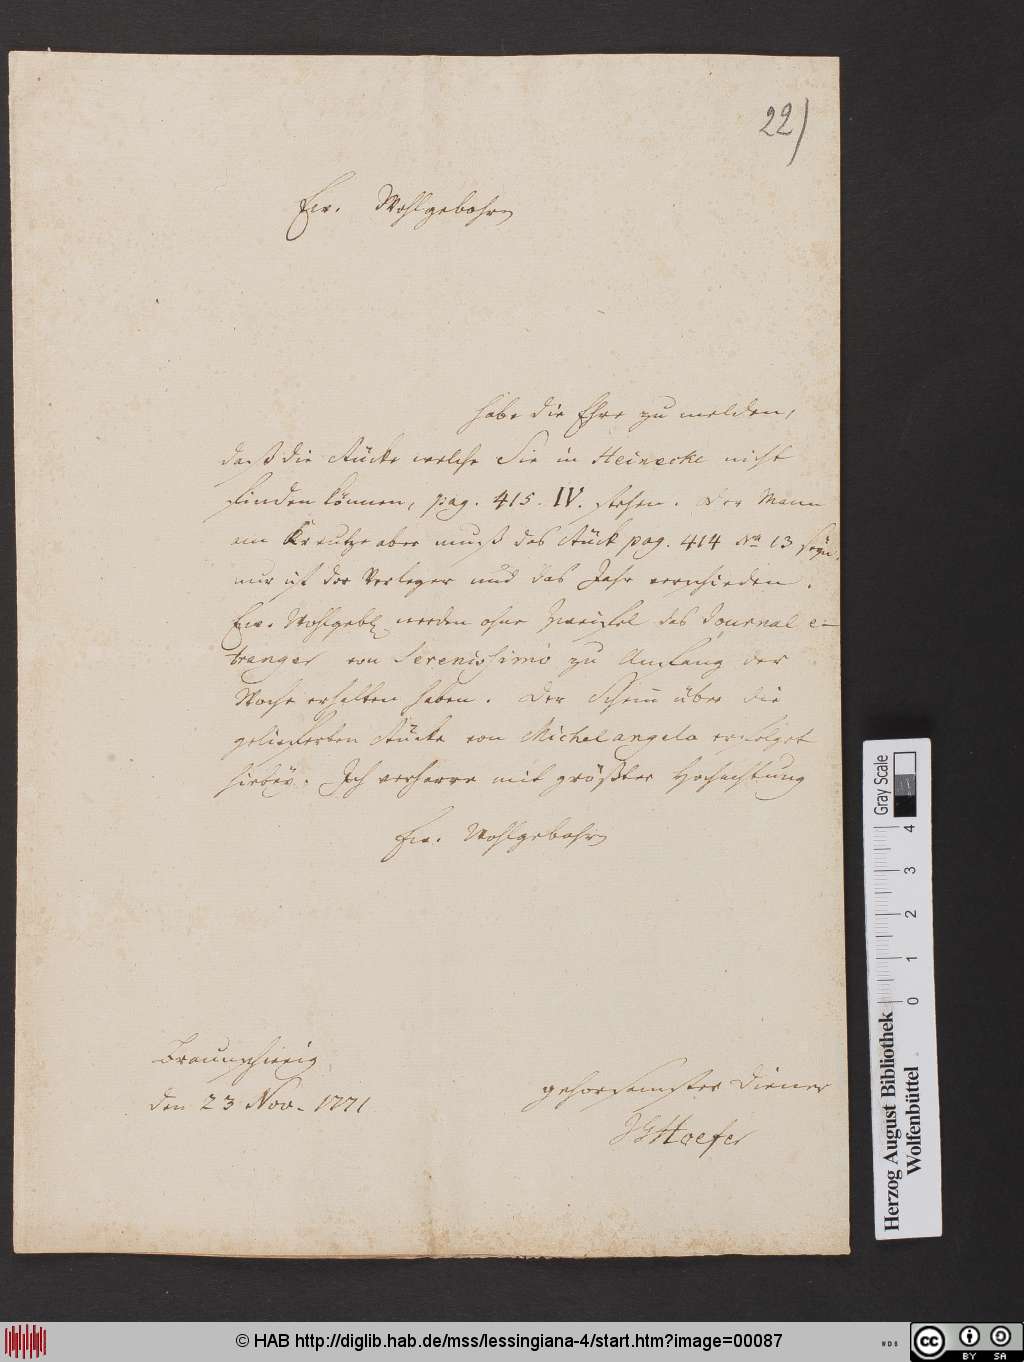 22)
Ew. Wohlgebohrn
habe die Ehre zu melden,
daß die Stücke welche Sie in Heinecke nicht
finden können, pag. 415. IV. stehen. Der Mann
am Kreutze aber muß das Stück pag. 414 No 13 seyn,
nur ist der Verleger und das Jahr verschieden.
Ew. Wohlgebh werden ohne Zweifel das Journal e-
tranger von Serenissimo zu Anfang der
Woche erhalten haben. Der Schein über die
gelieferten Stücke von Michelangelo erfolget
hiebey. Ich verharre mit größter Hochachtung
Ew. Wohlgebohrn
Braunschweig
den 23 Nov. 1771
gehorsamster Diener
Hoefer
Gray Scale
0 1 2 3 4
Herzog August Bibliothek
Wolfenbüttel
© HAB http://diglib.hab.de/mss/lessingiana-4/start.htm?image=00087
cc BY SA